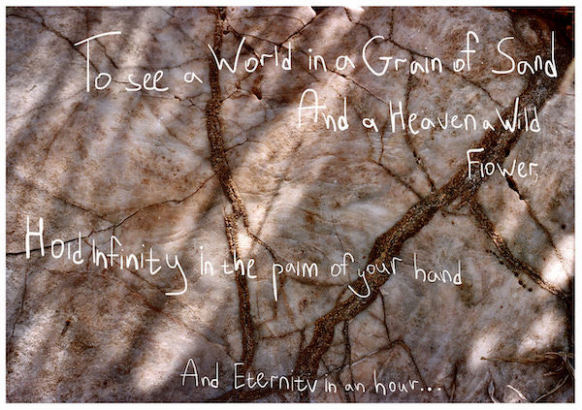 To see a World in a Grain of Sand
And a Heaven a Wild
Flower,
Hold Infinity in the palm of your hand
And Eternity in an hour...